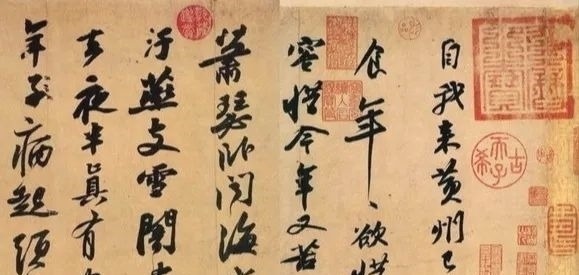 自我来黄州已
食年、欲惜
容惜今年又苦
蕭瑟卧聞海
汙燕支雪闇
去夜半真有
年子病起頭
古希天子